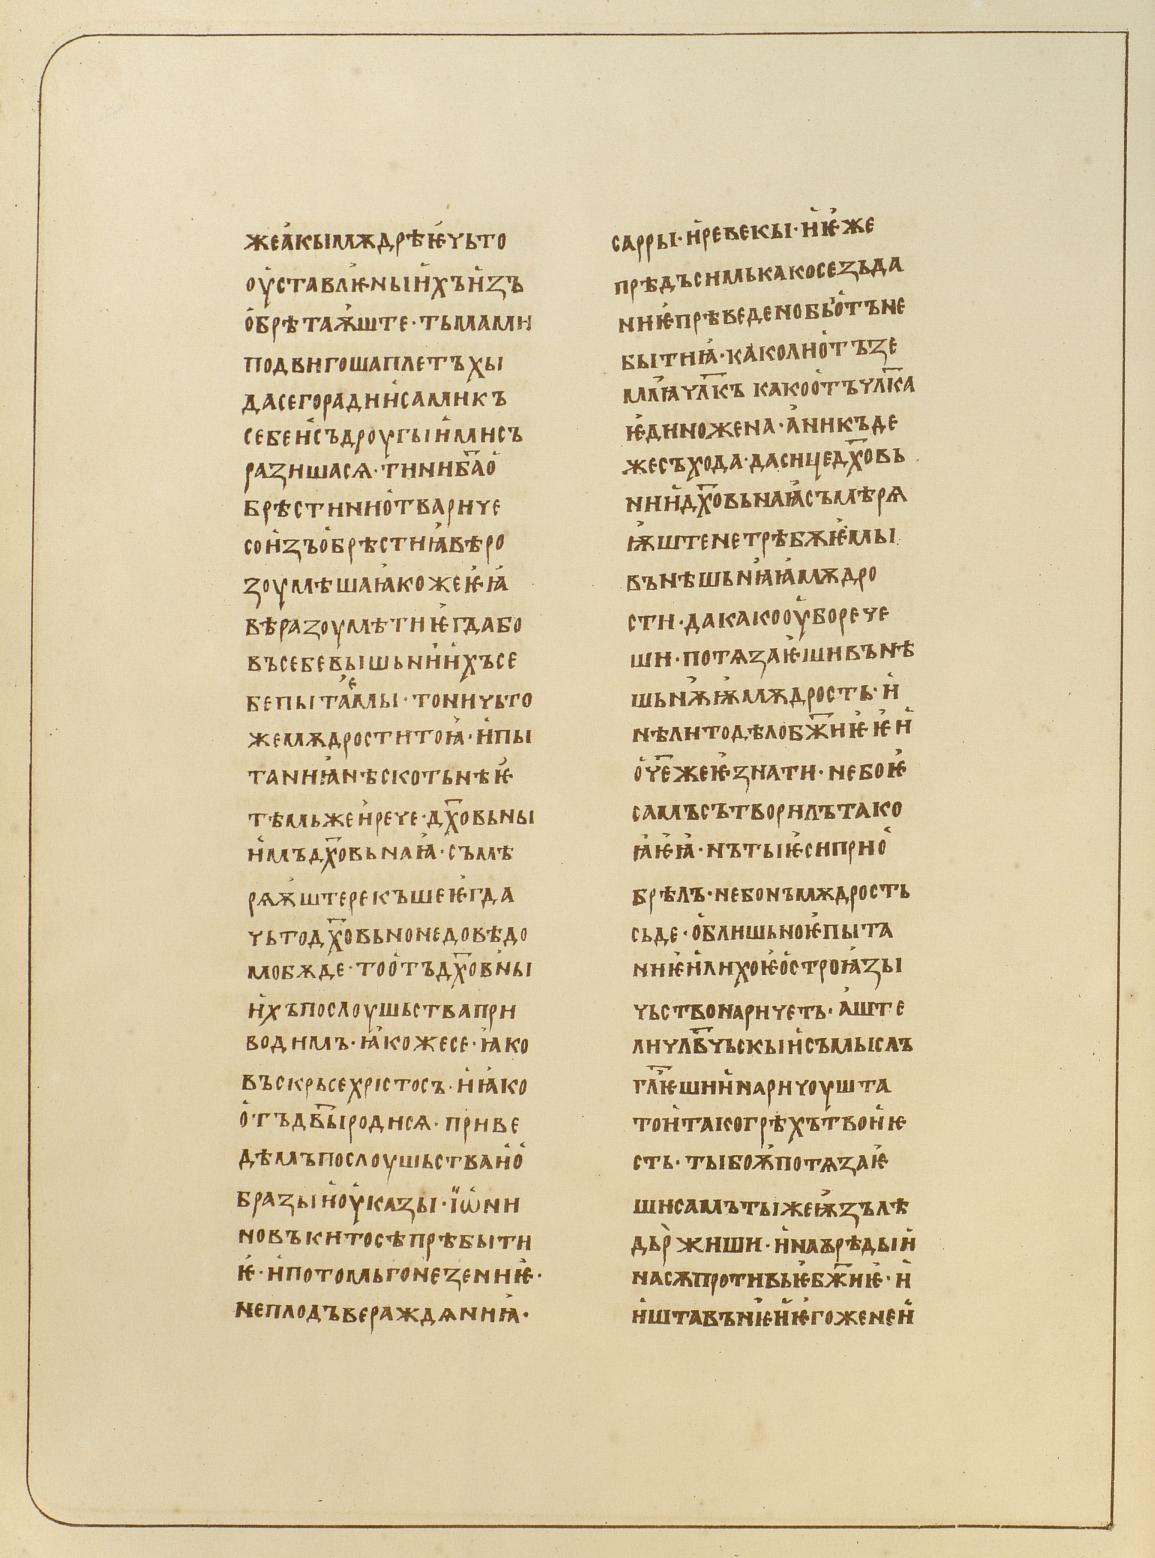 жеа҆кꙑмѫдрѣѥ҆чьто
оу҆ставлѥнꙑи҆хъи҆зъ
о҆брѣтаѭ҆ште · тъмами
подвигошаплетъхꙑ
дасегорадии҆самикъ
себеи҆съдроугꙑи҆мисъ
разишасѧ · тинибꙋа҆о҆
брѣстинио҆тваричє
сои҆зъо҆брѣстиꙗ҆вѣро
зоумѣшаꙗ҆коже ѥ҆ꙗ҆
вѣразоумѣтиѥ҆гдабо
въсебевꙑшьнии҆хъсе
бепꙑтаемꙑ · тоничьто
жемѫдроститоꙗ҆ · и҆пꙑ
таниꙗ҆нѣскотьнѣѥ҆
тѣмьжеи҆рече · дх҃овьнꙑ
и҆мъдх҃овьнаꙗ҆ · съмѣ
рѧѭ҆штерекъшеѥ҆гда
чьтодх҃овьнонедовѣдо
мобѫде · тоо҆тъдх҃овнꙑ
и҆хъпослоушьстваприи
водимъ · ꙗ҆кожесе · ꙗ҆ко
въскрьсехрістосъ · и҆ꙗ҆ко
о҆тъдв҃ꙑродисѧ · приве
дѣмъпослоушьстваи҆о҆
бразꙑи҆оу҆казꙑ · і҆ѡ҆ни
новъкитосѣпрѣбꙑти
ѥ҆ · и҆потомьгонезениѥ҆ ·
неплодъвераждѧниꙗ҆ ·
саррꙑ · и҆ревекꙑ · и҆ѥ҆же
прѣдъсимькакосезъда
ниѥ҆прѣведенобꙑ о҆тъне
бꙑтиꙗ҆ · каколи о҆тъзе
млѧ҆ чл҃къ како о҆тъчл҃ка
ѥ҆диножена · а҆никъде
жесъхода · дасицедх҃овь
нии҆дх҃овьнаꙗ҆съмѣрѧ
ѭ҆штенетрѣбѫѥ҆мꙑ
вънѣшьнꙗꙗ҆мѫдро
сти · дакакооу҆борече
ши · потѧзаѥ҆шивънѣ
шьнѫѭ҆мѫдрость · и҆
нѣлитодѣлобж҃иѥ҆ ѥ҆ и҆
о҆ч҃ежеѥ҆знати · небоѥ҆
самъсътворилътако
ꙗ҆ѥ҆ꙗ҆ · нътꙑѥ҆сиприо҆
брѣлъ · небонъмѫдрость
сьде · о҆блишьноѥ҆пꙑта
ниѥ҆и҆лихоѥ҆о҆строꙗ҆зꙑ
чьствонаричеть · а҆ште
личл҃вчьскꙑи҆съмꙑслъ
гл҃ѥшии҆наричоушта
тои҆такогрѣхътвои҆ѥ
сть · тꙑбоѭ҆потѧзаѥ҆
шисамътꙑжеѭ҆зълѣ
дьржиши · и҆наѹрѣдꙑи҆
насѫпротивьѥ҆бж҃иѥ҆ · и҆
и҆штавънѥ҆и҆ѥ҆гоженеи҆